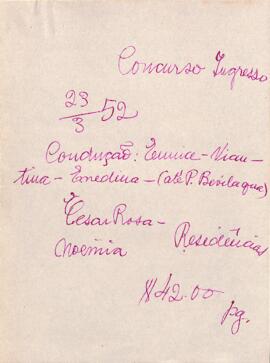 Concurso Ingresso
23/3 52
Condução: Eunice - Vian-
tina - Enedina - (até P. Bevilaqua)
Cesar Rosa -
Noêmia Residências
$42.00
pg.